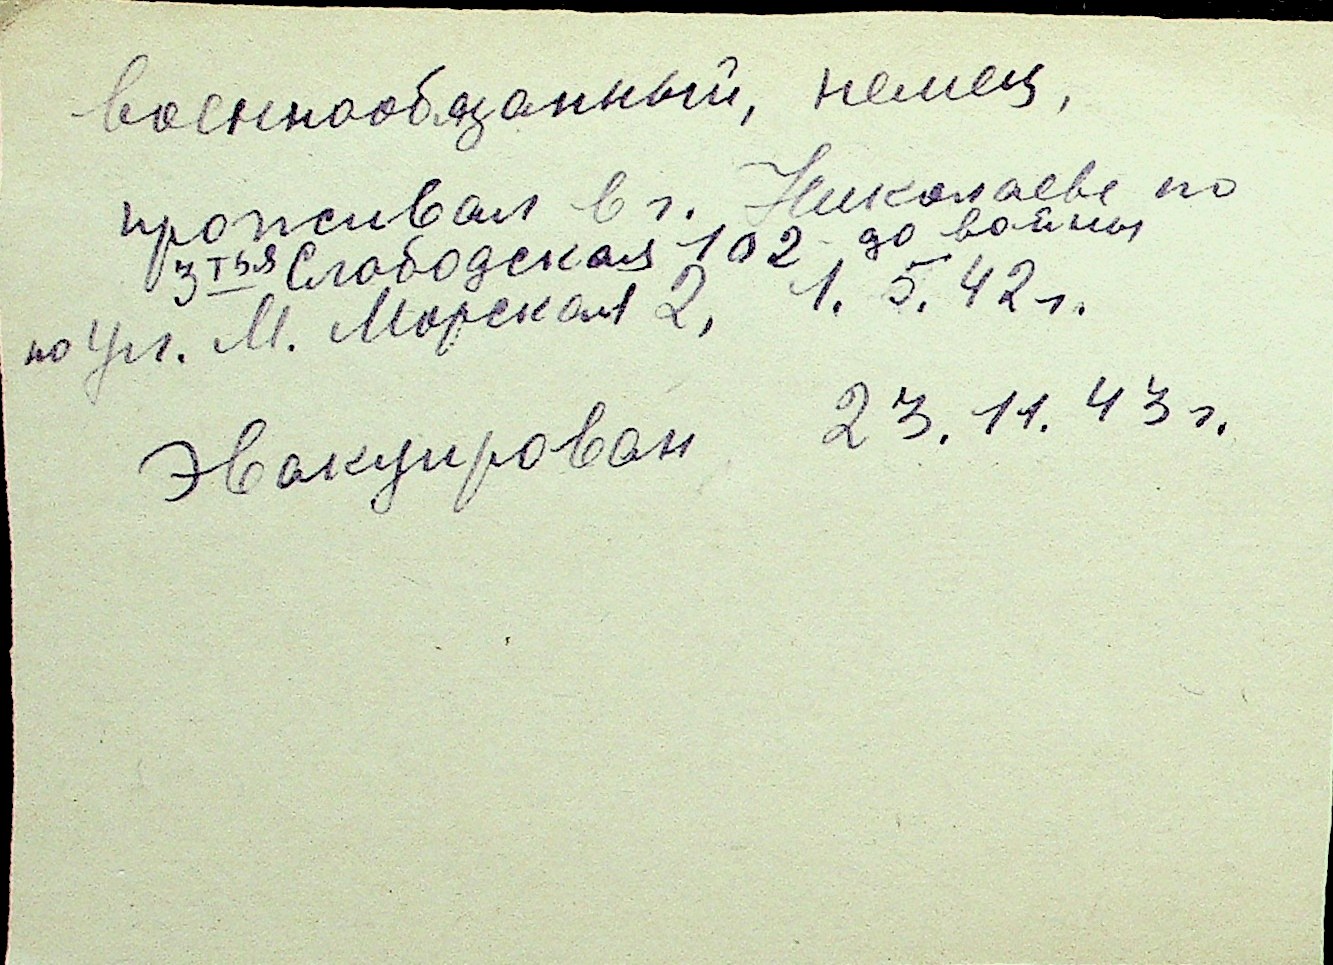 военнообязанный, немец,
проживал в г. Николаеве по
3тья Слободская 102 до войны
по ул. М. Морская 2, 1. 5. 42 г.
Эвакуирован 23. 11. 43 г.